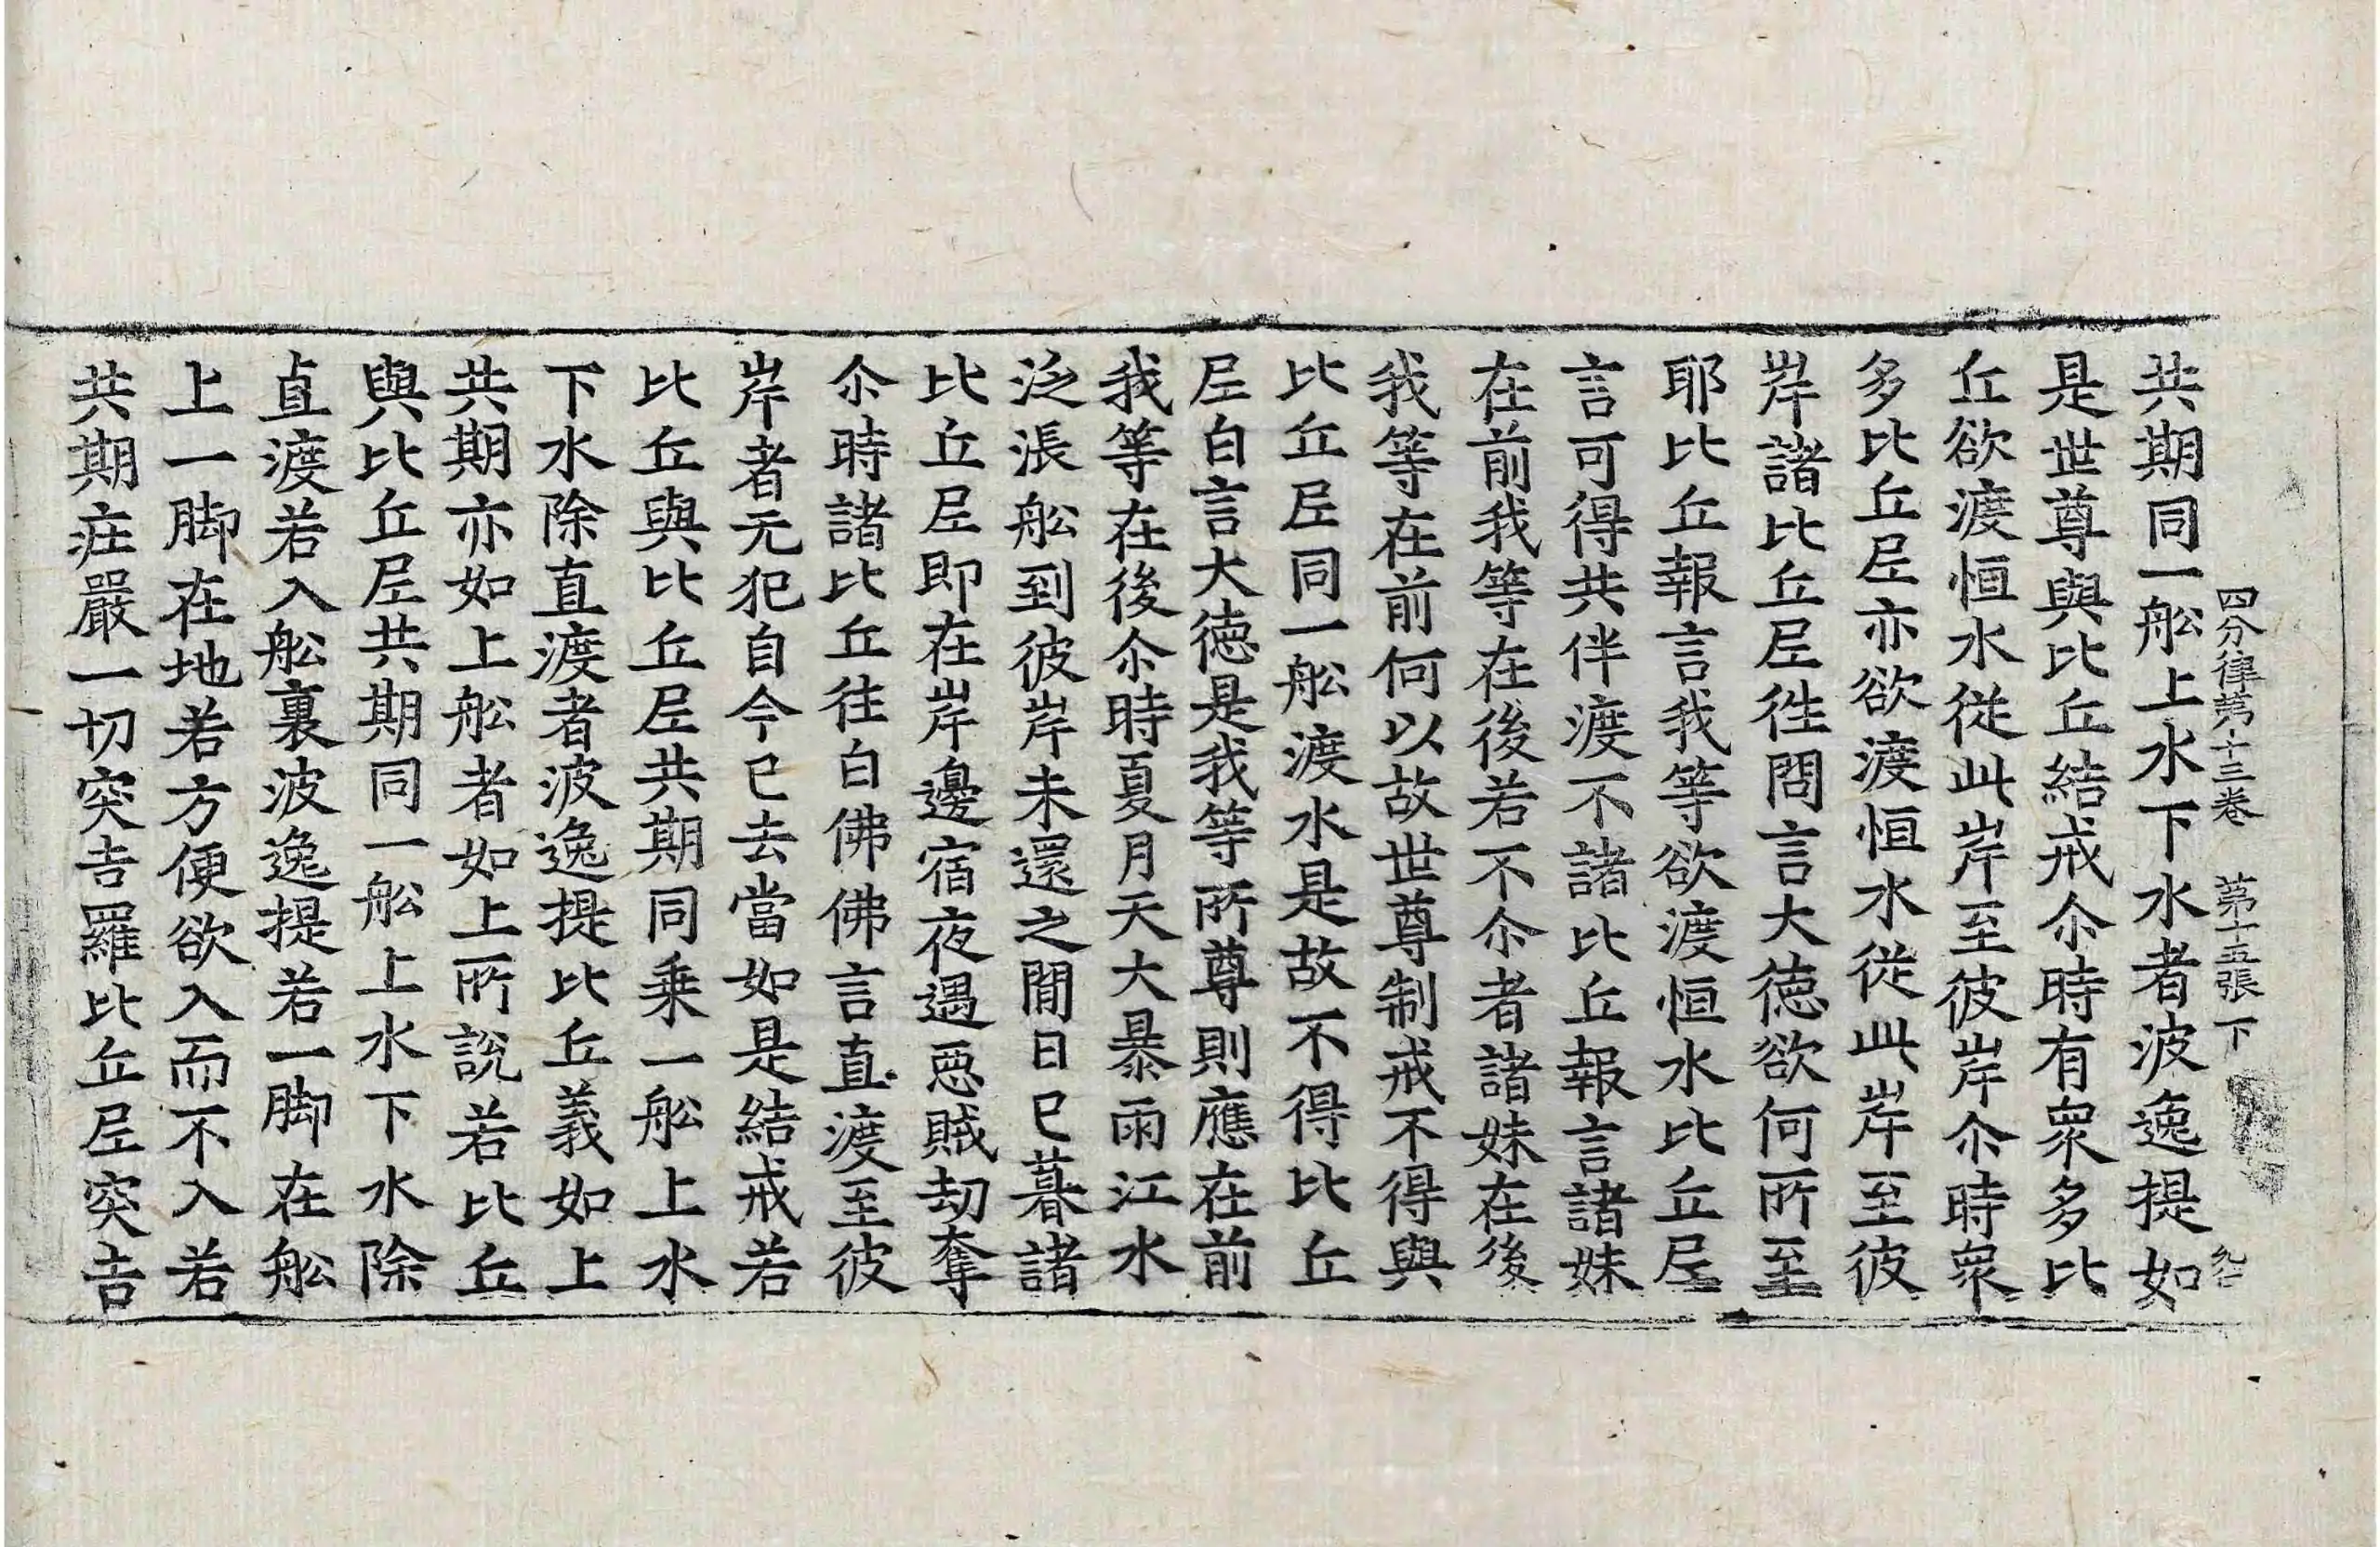 四分律第十三卷　第十五張　下
共期同一舩上水下水者波逸提如
是世尊與比丘結戒尒時有眾多比
丘欲渡恒水從此岸至彼岸尒時眾
多比丘尼亦欲渡恒水從此岸至彼
岸諸比丘尼徃問言大德欲何所至
耶比丘報言我等欲渡恒水比丘尼
言可得共伴渡不諸比丘報言諸妹
在前我等在後若不尒者諸妹在後
我等在前何以故世尊制戒不得與
比丘尼同一舩渡水是故不得比丘
尼白言大德是我等所尊則應在前
我等在後尒時夏月天大暴雨江水
泛漲舩到彼岸未還之閒日已暮諸
比丘尼即在岸邊宿夜遇惡賊劫奪
尒時諸比丘往白佛佛言直渡至彼
岸者无犯自今已去當如是結戒若
比丘與比丘尼共期同乗一舩上水
下水除直渡者波逸提比丘義如上
共期亦如上舩者如上所說若比丘
與比丘尼共期同一舩上水下水除
直渡若入舩裏波逸提若一脚在舩
上一脚在地若方便欲入而不入若
共期疘嚴一切突吉羅比丘尼突吉